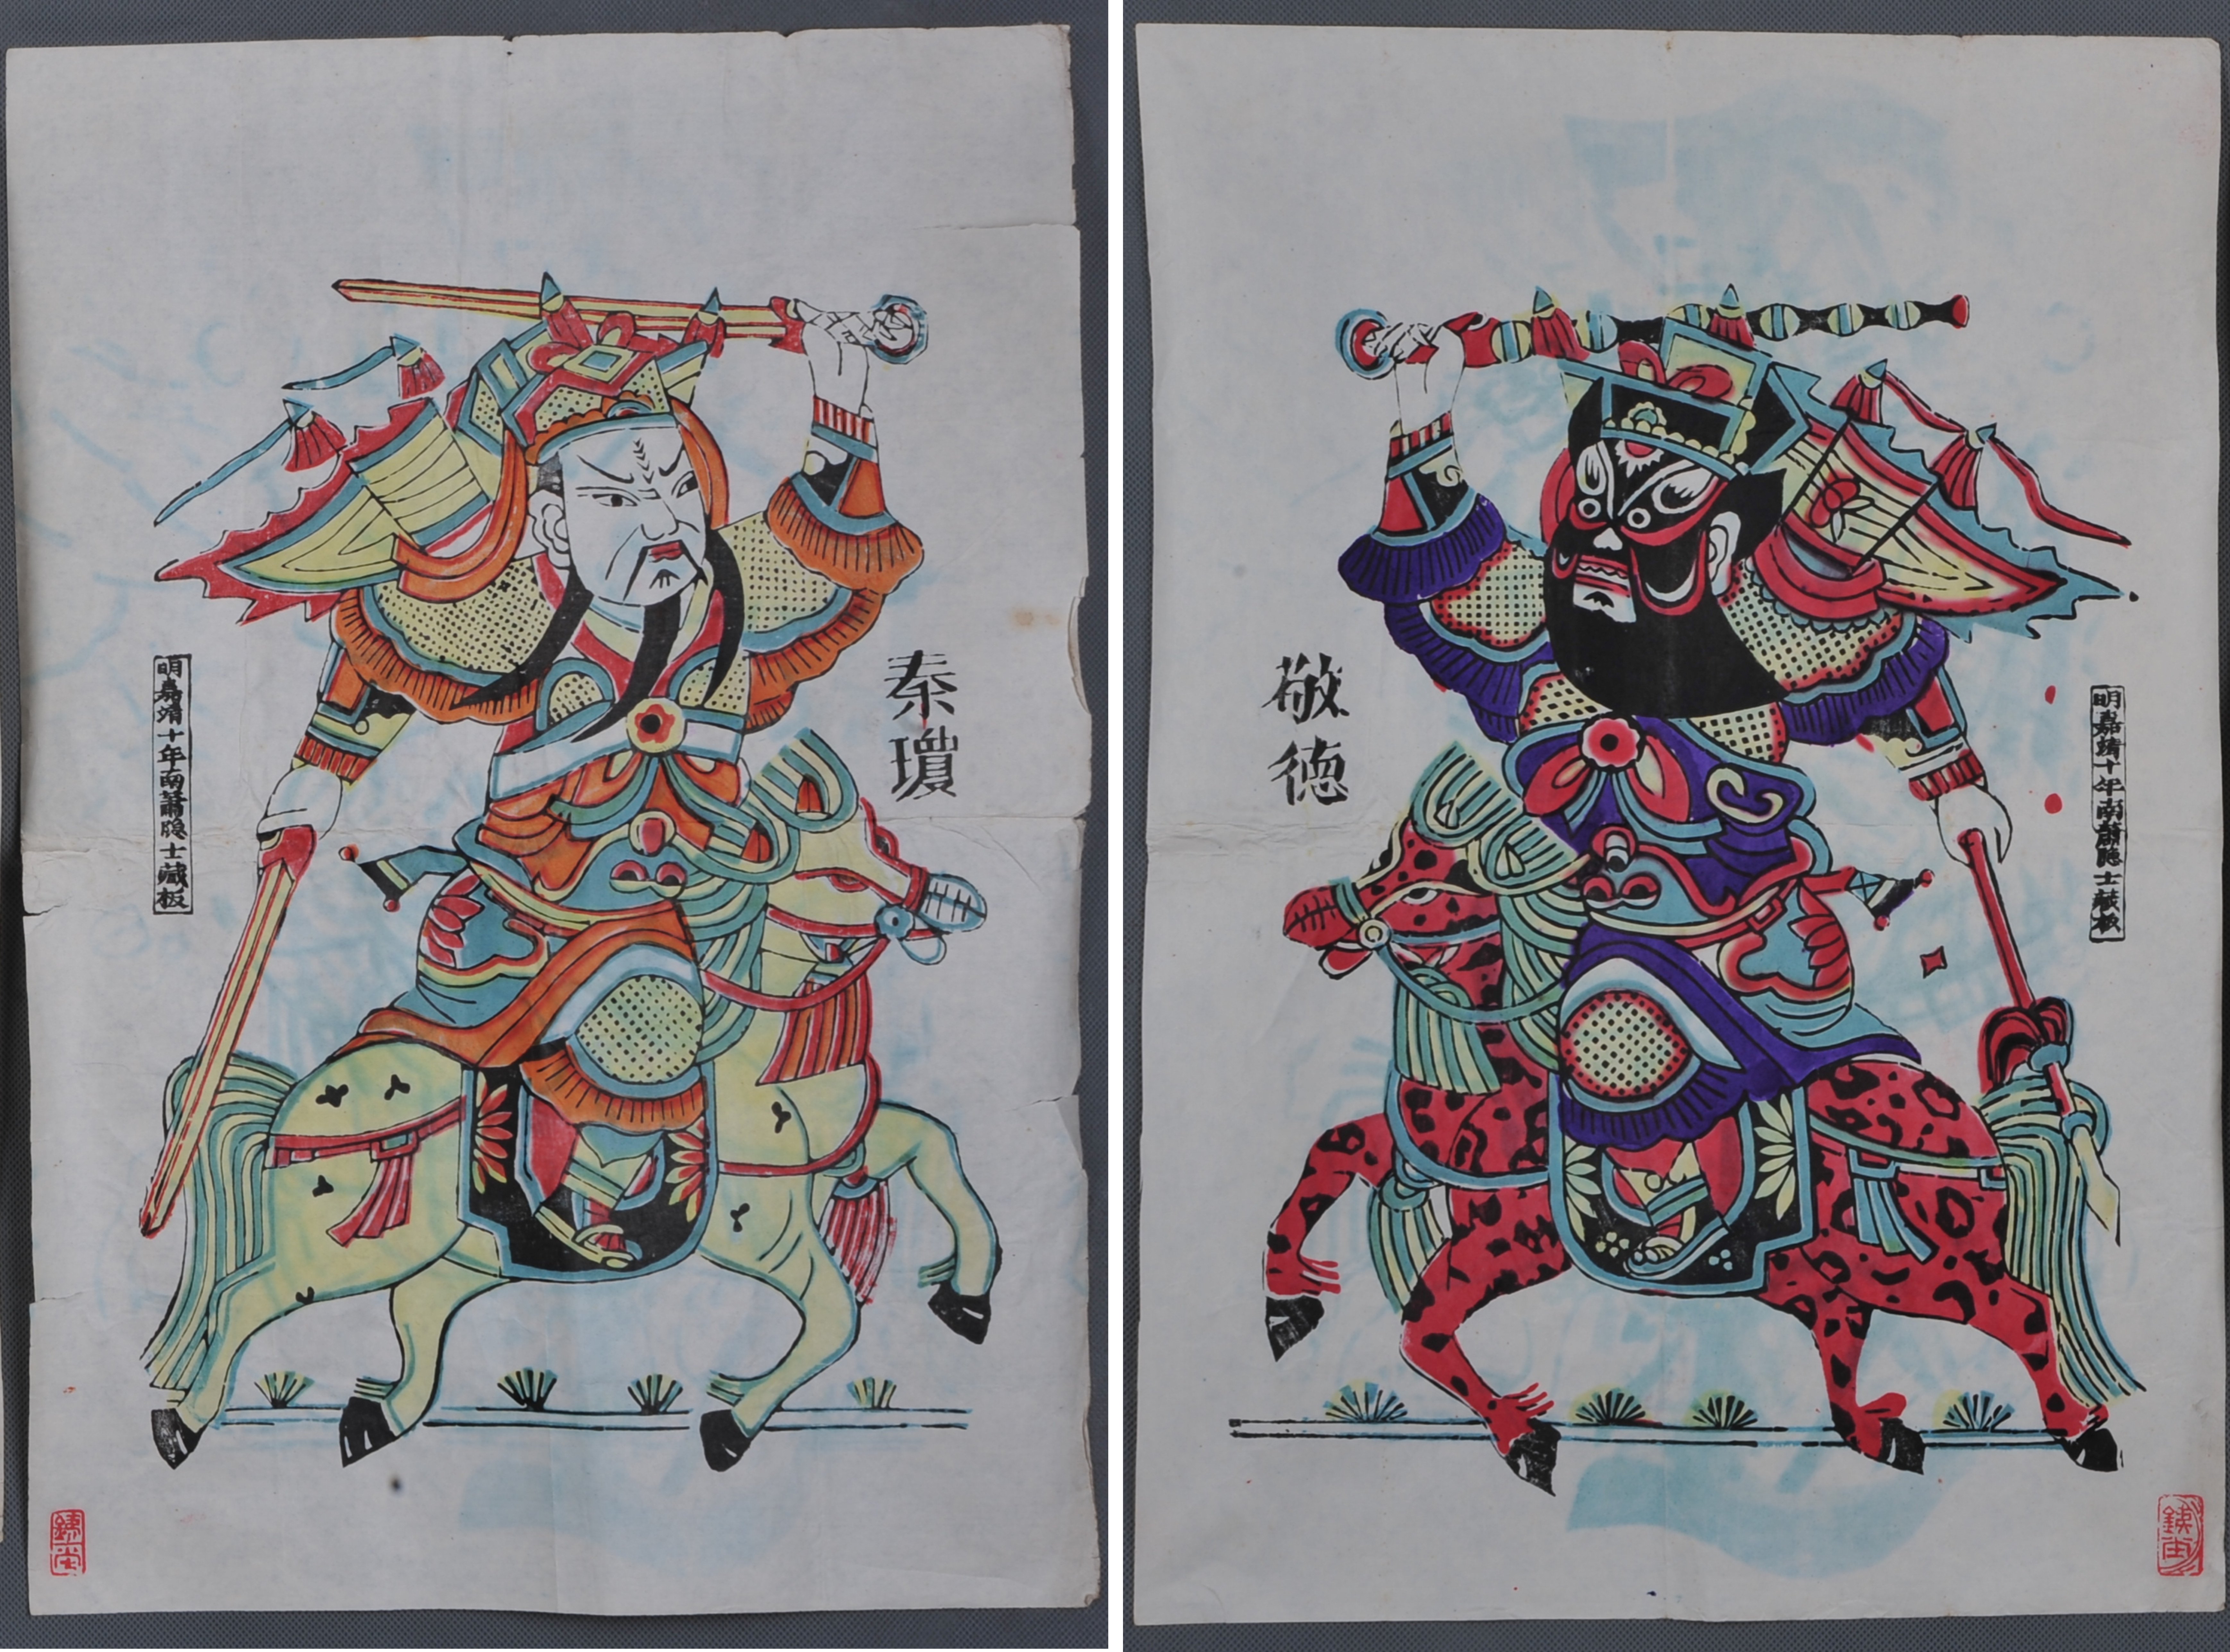 秦瓊
明嘉靖十年南蕭隐士藏板
敬德
明嘉靖十年南蕭隐士藏板